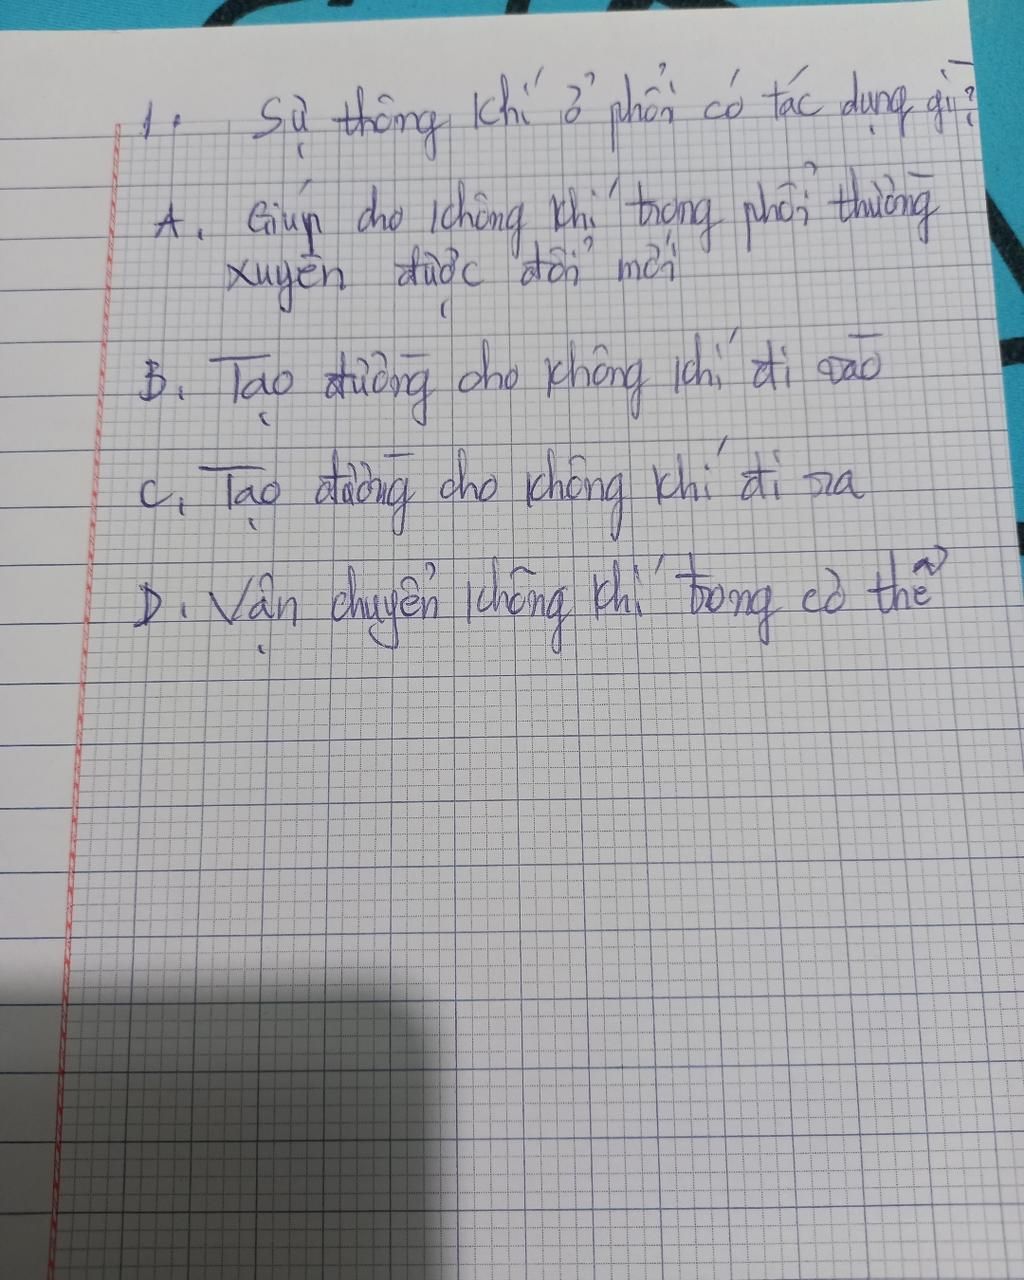 1. Sự thông khí ở phổi có tác dụng gì?
A. Giúp cho không khí trong phổi thường
xuyên được đổi mới
B. Tạo đường cho không khí đi vào
C. Tạo đường cho không khí đi ra
D. Vận chuyển không khí trong cơ thể